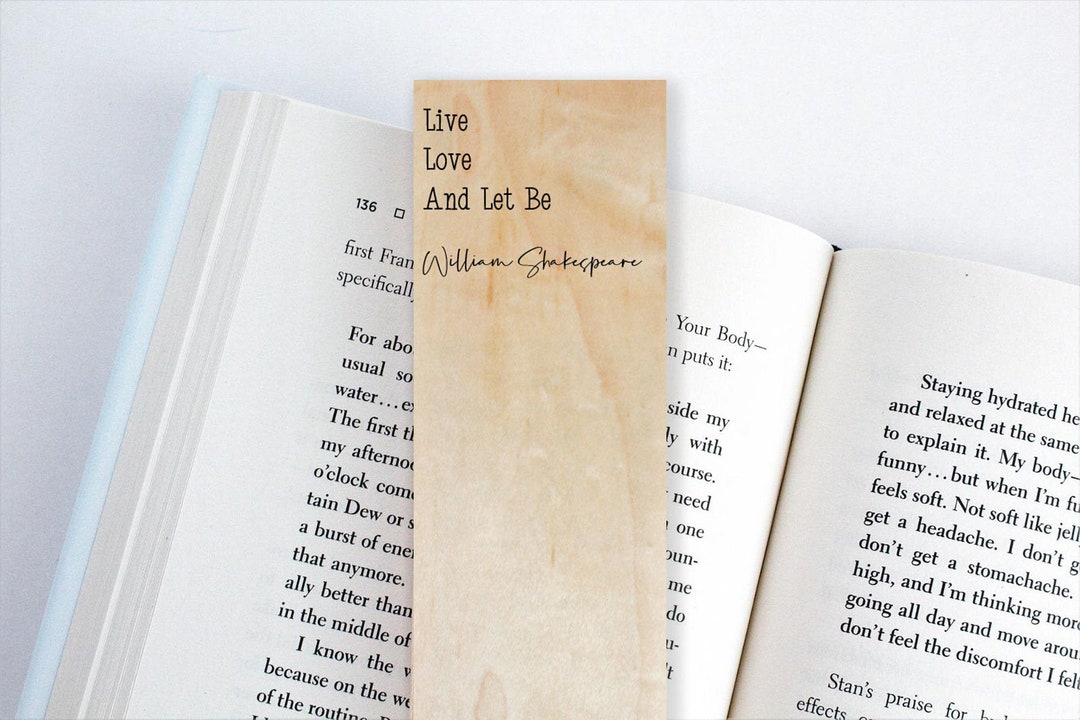 Live
Love
And Let Be
William Shakespeare
136
first Fran
specifically
For abo
usual so
water…ex
The first th
my afternoo
o’clock com
tain Dew or s
a burst of ener
that anymore.
ally better than
in the middle of
I know the w
because on the we
of the routine.
Your Body—
n puts it:
side my
ly with
course.
need
one
oun-
me
do
u-
t
Staying hydrated he
and relaxed at the same
to explain it. My body—
funny…but when I’m fu
feels soft. Not soft like jell
get a headache. I don’t g
don’t get a stomachache.
high, and I’m thinking more
going all day and move arou
don’t feel the discomfort I felt
Stan’s praise for
effects